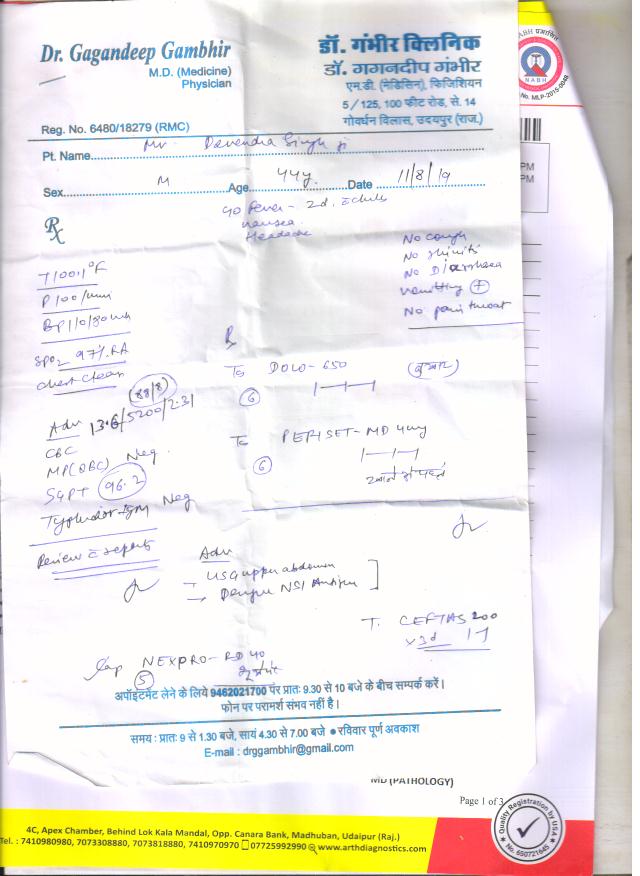 Dr. Gagandeep Gambhir
M.D. (Medicine)
Physician
Reg. No. 6480/18279 (RMC)
डॉ. गंभीर क्लिनिक
डॉ. गगनदीप गंभीर
एम.डी. (मेडिसिन), फिजिशियन
5/125, 100 फीट रोड, से. 14
गोवर्धन विलास, उदयपुर (राज.)
Pt. Name Mr. Devendra Singh ji
Sex M Age 44y. Date 11/8/19
Fever - 2d.
nausea
Headache
No cough
No
No Diarrhoea
vomitting +
No pain throat
T 100.1°F
P 100/min
BP 110/80
SPO2 97% RA
Chest clear
Rx
Tab DOLO-650 (बुखार)
6
(88/8)
Adv 13.6/5200/2.31
CBC
MP(QBC) Neg.
SGPT 96.2
Typhidot IgM Neg
Review c reports
Tab PERISET-MD 4mg
6
खाने से पहले
Adv
→ USG upper abdomen
→ Dengue NS1 Antigen
T. CEFTAS 200
x3d 1-1
Cap NEXPRO-RD 40
5
अपॉइंटमेंट लेने के लिये 9462021700 पर प्रातः 9.30 से 10 बजे के बीच सम्पर्क करें।
फोन पर परामर्श संभव नहीं है।
समय : प्रातः 9 से 1.30 बजे, सायं 4.30 से 7.00 बजे ● रविवार पूर्ण अवकाश
E-mail : drggambhir@gmail.com
NABH
No. MLP-2015-0048
PM
PM
MD (PATHOLOGY)
Page 1 of 3
4C, Apex Chamber, Behind Lok Kala Mandal, Opp. Canara Bank, Madhuban, Udaipur (Raj.)
Tel. : 7410980980, 7073308880, 7073818880, 7410970970 07725992990 www.arthdiagnostics.com
Quality Registration by USA
No. 650721645